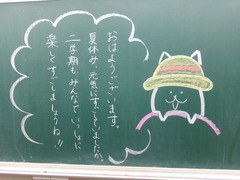 おはようございます。
夏休み、元気にすごしていましたか。
二学期もみんなでいっしょに
楽しくすごしましょうね!!